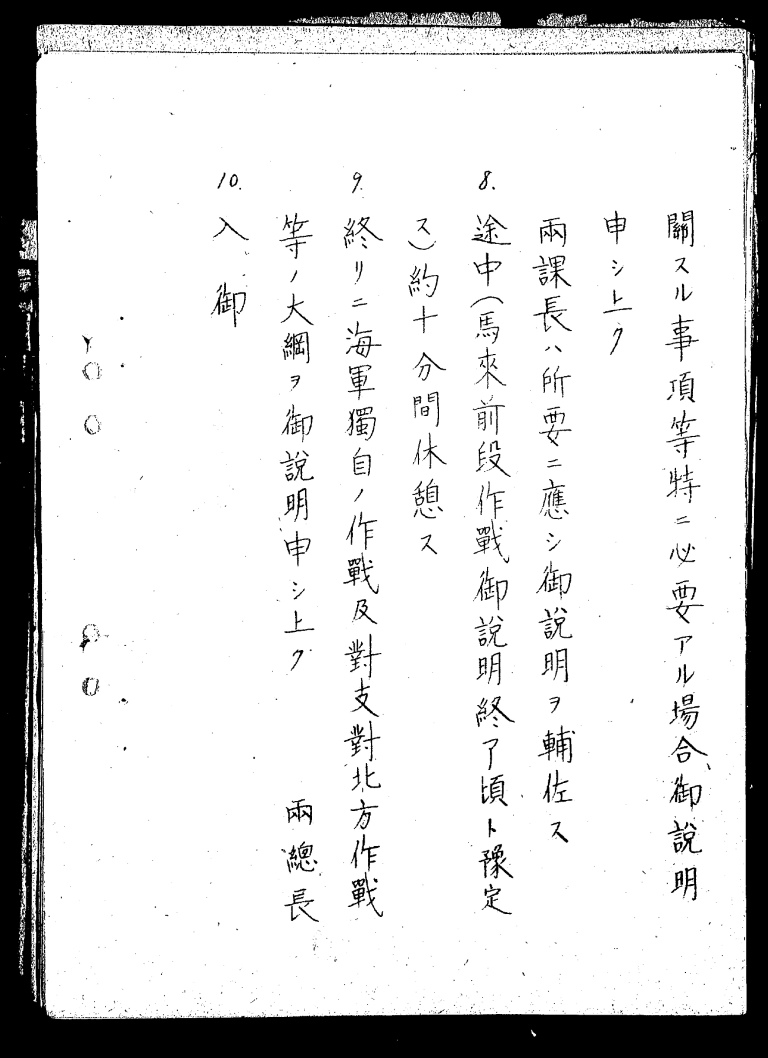 關スル事項等特ニ必要アル場合御說明
申シ上ク
兩課長ハ所要ニ應シ御說明ヲ輔佐ス
8. 途中(馬來前段作戰御說明終ア頃ト豫定
ス)約十分間休憩ス
9. 終リニ海軍獨自ノ作戰及對支對北方作戰
等ノ大綱ヲ御說明申シ上ク　兩總長
10. 入御